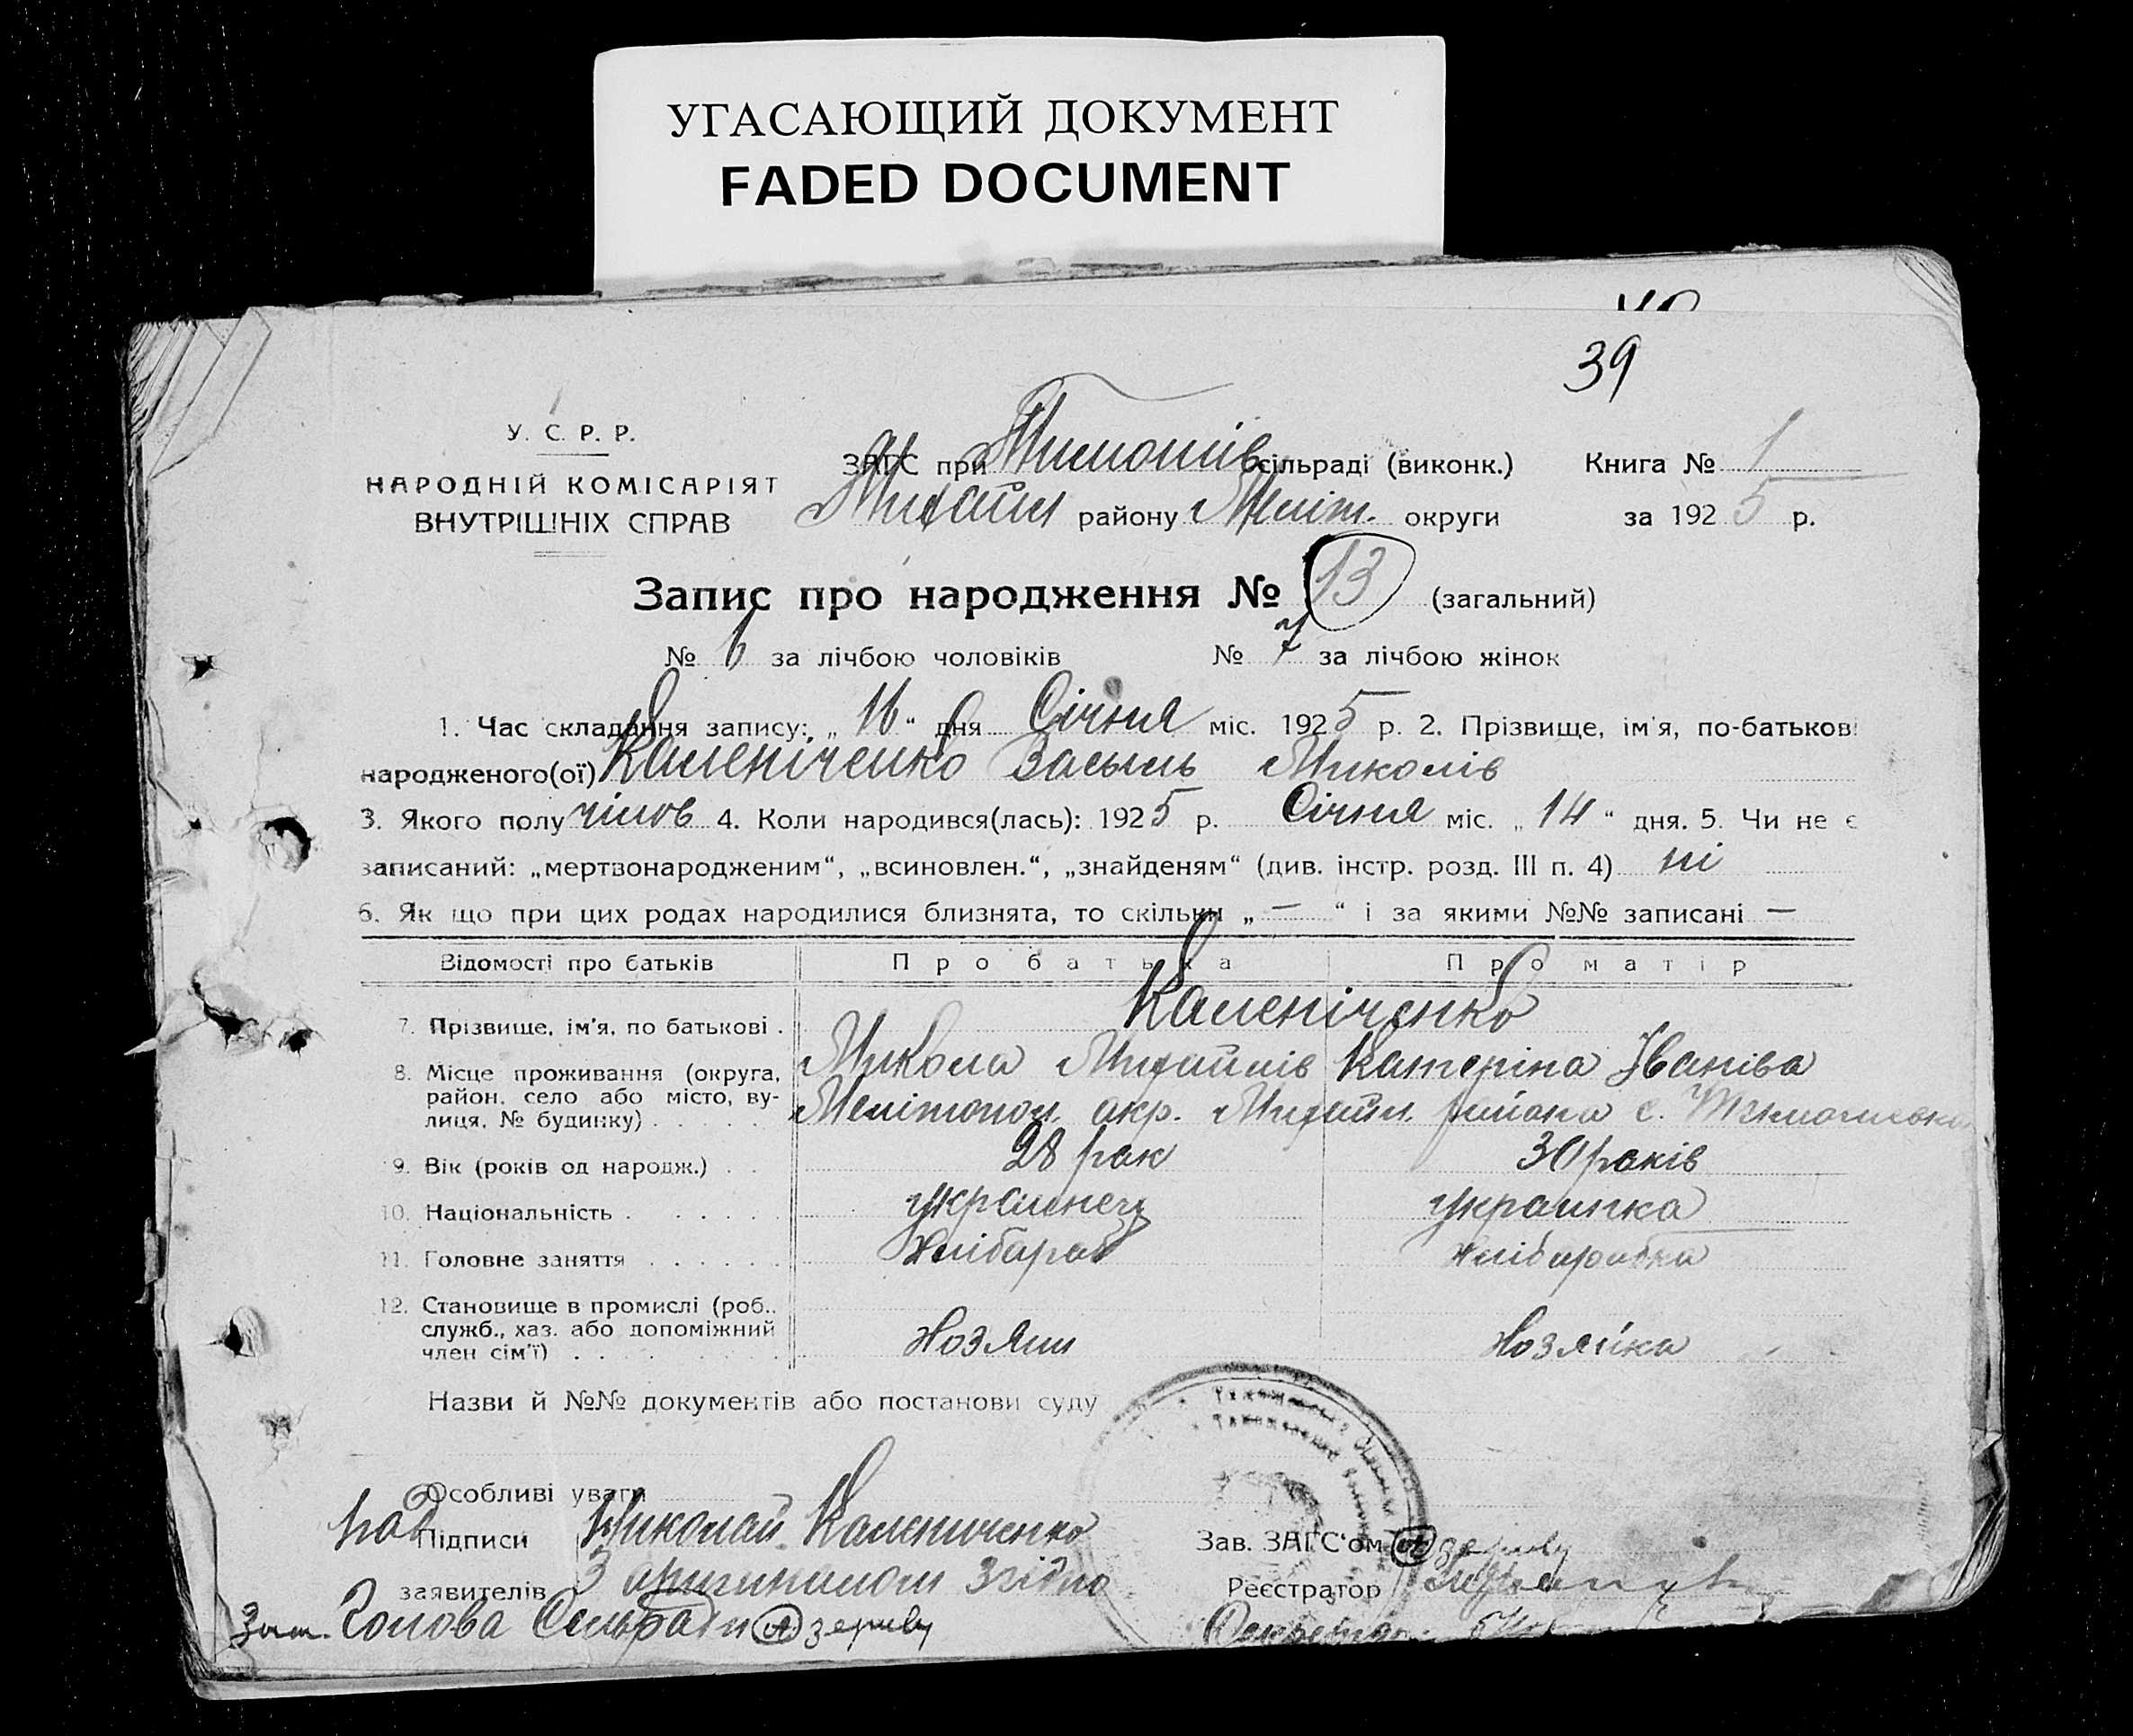 УГАСАЮЩИЙ ДОКУМЕНТ
FADED DOCUMENT
39
У. С. Р. Р.
НАРОДНІЙ КОМІСАРІЯТ
ВНУТРІШНІХ СПРАВ
ЗАГС при Тимошів сільраді (виконк.) Книга № 1
Михайл району Меліт. округи за 1925 р.
Запис про народження № 13 (загальний)
№ 6 за лічбою чоловіків № 7 за лічбою жінок
1. Час складання запису: „16“ дня Січня міс. 1925 р. 2. Прізвище, ім'я, по-батькові
народженого(ої) Каленіченко Василь Миколів
3. Якого полу чілов 4. Коли народився(лась): 1925 р. Січня міс. „14“ дня. 5. Чи не є
записаний: „мертвонародженим“, „всиновлен.“, „знайденям“ (див. інстр. розд. III п. 4) ні
6. Як що при цих родах народилися близнята, то скільки „—“ і за якими №№ записані —
Відомості про батьків Про батька Про матір
7. Прізвище, ім'я, по батькові . Каленіченко
Микола Михайлів Катеріна Іванівa
8. Місце проживання (округа,
район, село або місто, ву-
лиця, № будинку) . . . . . Мелітопол. окр. Михайл. района с.
9. Вік (років од народж.) . . 28 рок 30 років
10. Національність . . . . . . украінец украинка
11. Головне заняття . . . . . . Хлібараб Хлібарабка
12. Становище в промислі (роб.,
служб., хаз. або допоміжний
член сім'ї) . . . . . . . Хозяин Хозяйка
Назви й №№ документів або постанови суду
Особливі уваги
Підписи Николай Калениченко Зав. ЗАГС'ом
заявителів З оригиналом згідно Реєстратор
Зам. Голова Сельради Секретар